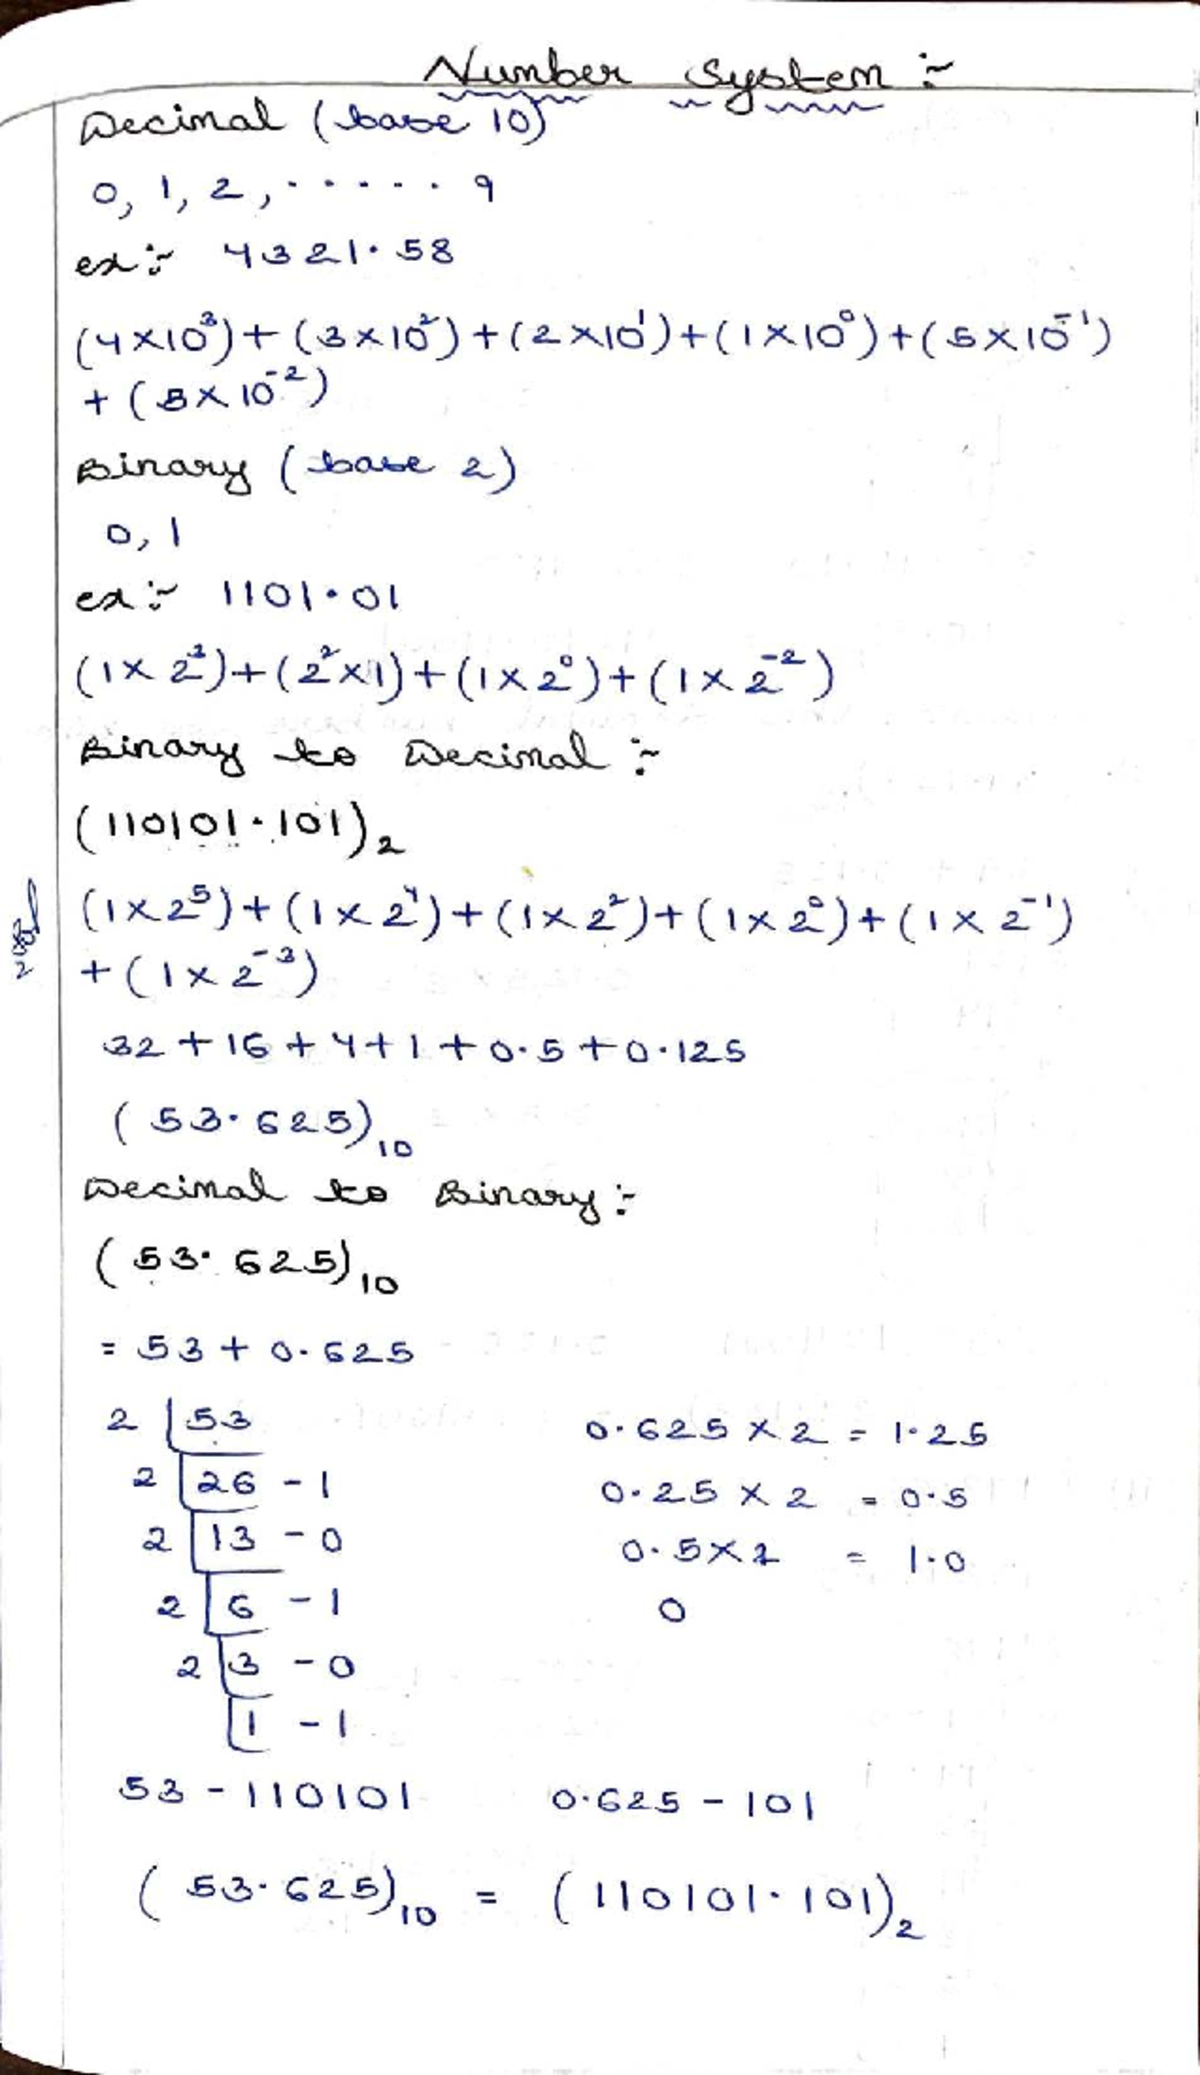 Number System :-
Decimal (base 10)
0, 1, 2, ...... 9
ex :- 4321.58
(4×10³) + (3×10²) + (2×10¹) + (1×10⁰) + (5×10⁻¹)
+ (8×10⁻²)
Binary (base 2)
0, 1
ex :- 1101.01
(1×2³) + (2²×1) + (1×2⁰) + (1×2⁻²)
Binary to Decimal :-
(110101.101)₂
(1×2⁵) + (1×2⁴) + (1×2²) + (1×2⁰) + (1×2⁻¹)
+ (1×2⁻³)
32 + 16 + 4 + 1 + 0.5 + 0.125
(53.625)₁₀
Decimal to Binary :-
(53.625)₁₀
= 53 + 0.625
2 | 53
2 | 26 - 1
2 | 13 - 0
2 | 6 - 1
2 | 3 - 0
| 1 - 1
0.625 × 2 = 1.25
0.25 × 2 = 0.5
0.5 × 2 = 1.0
0
53 - 110101 0.625 - 101
(53.625)₁₀ = (110101.101)₂